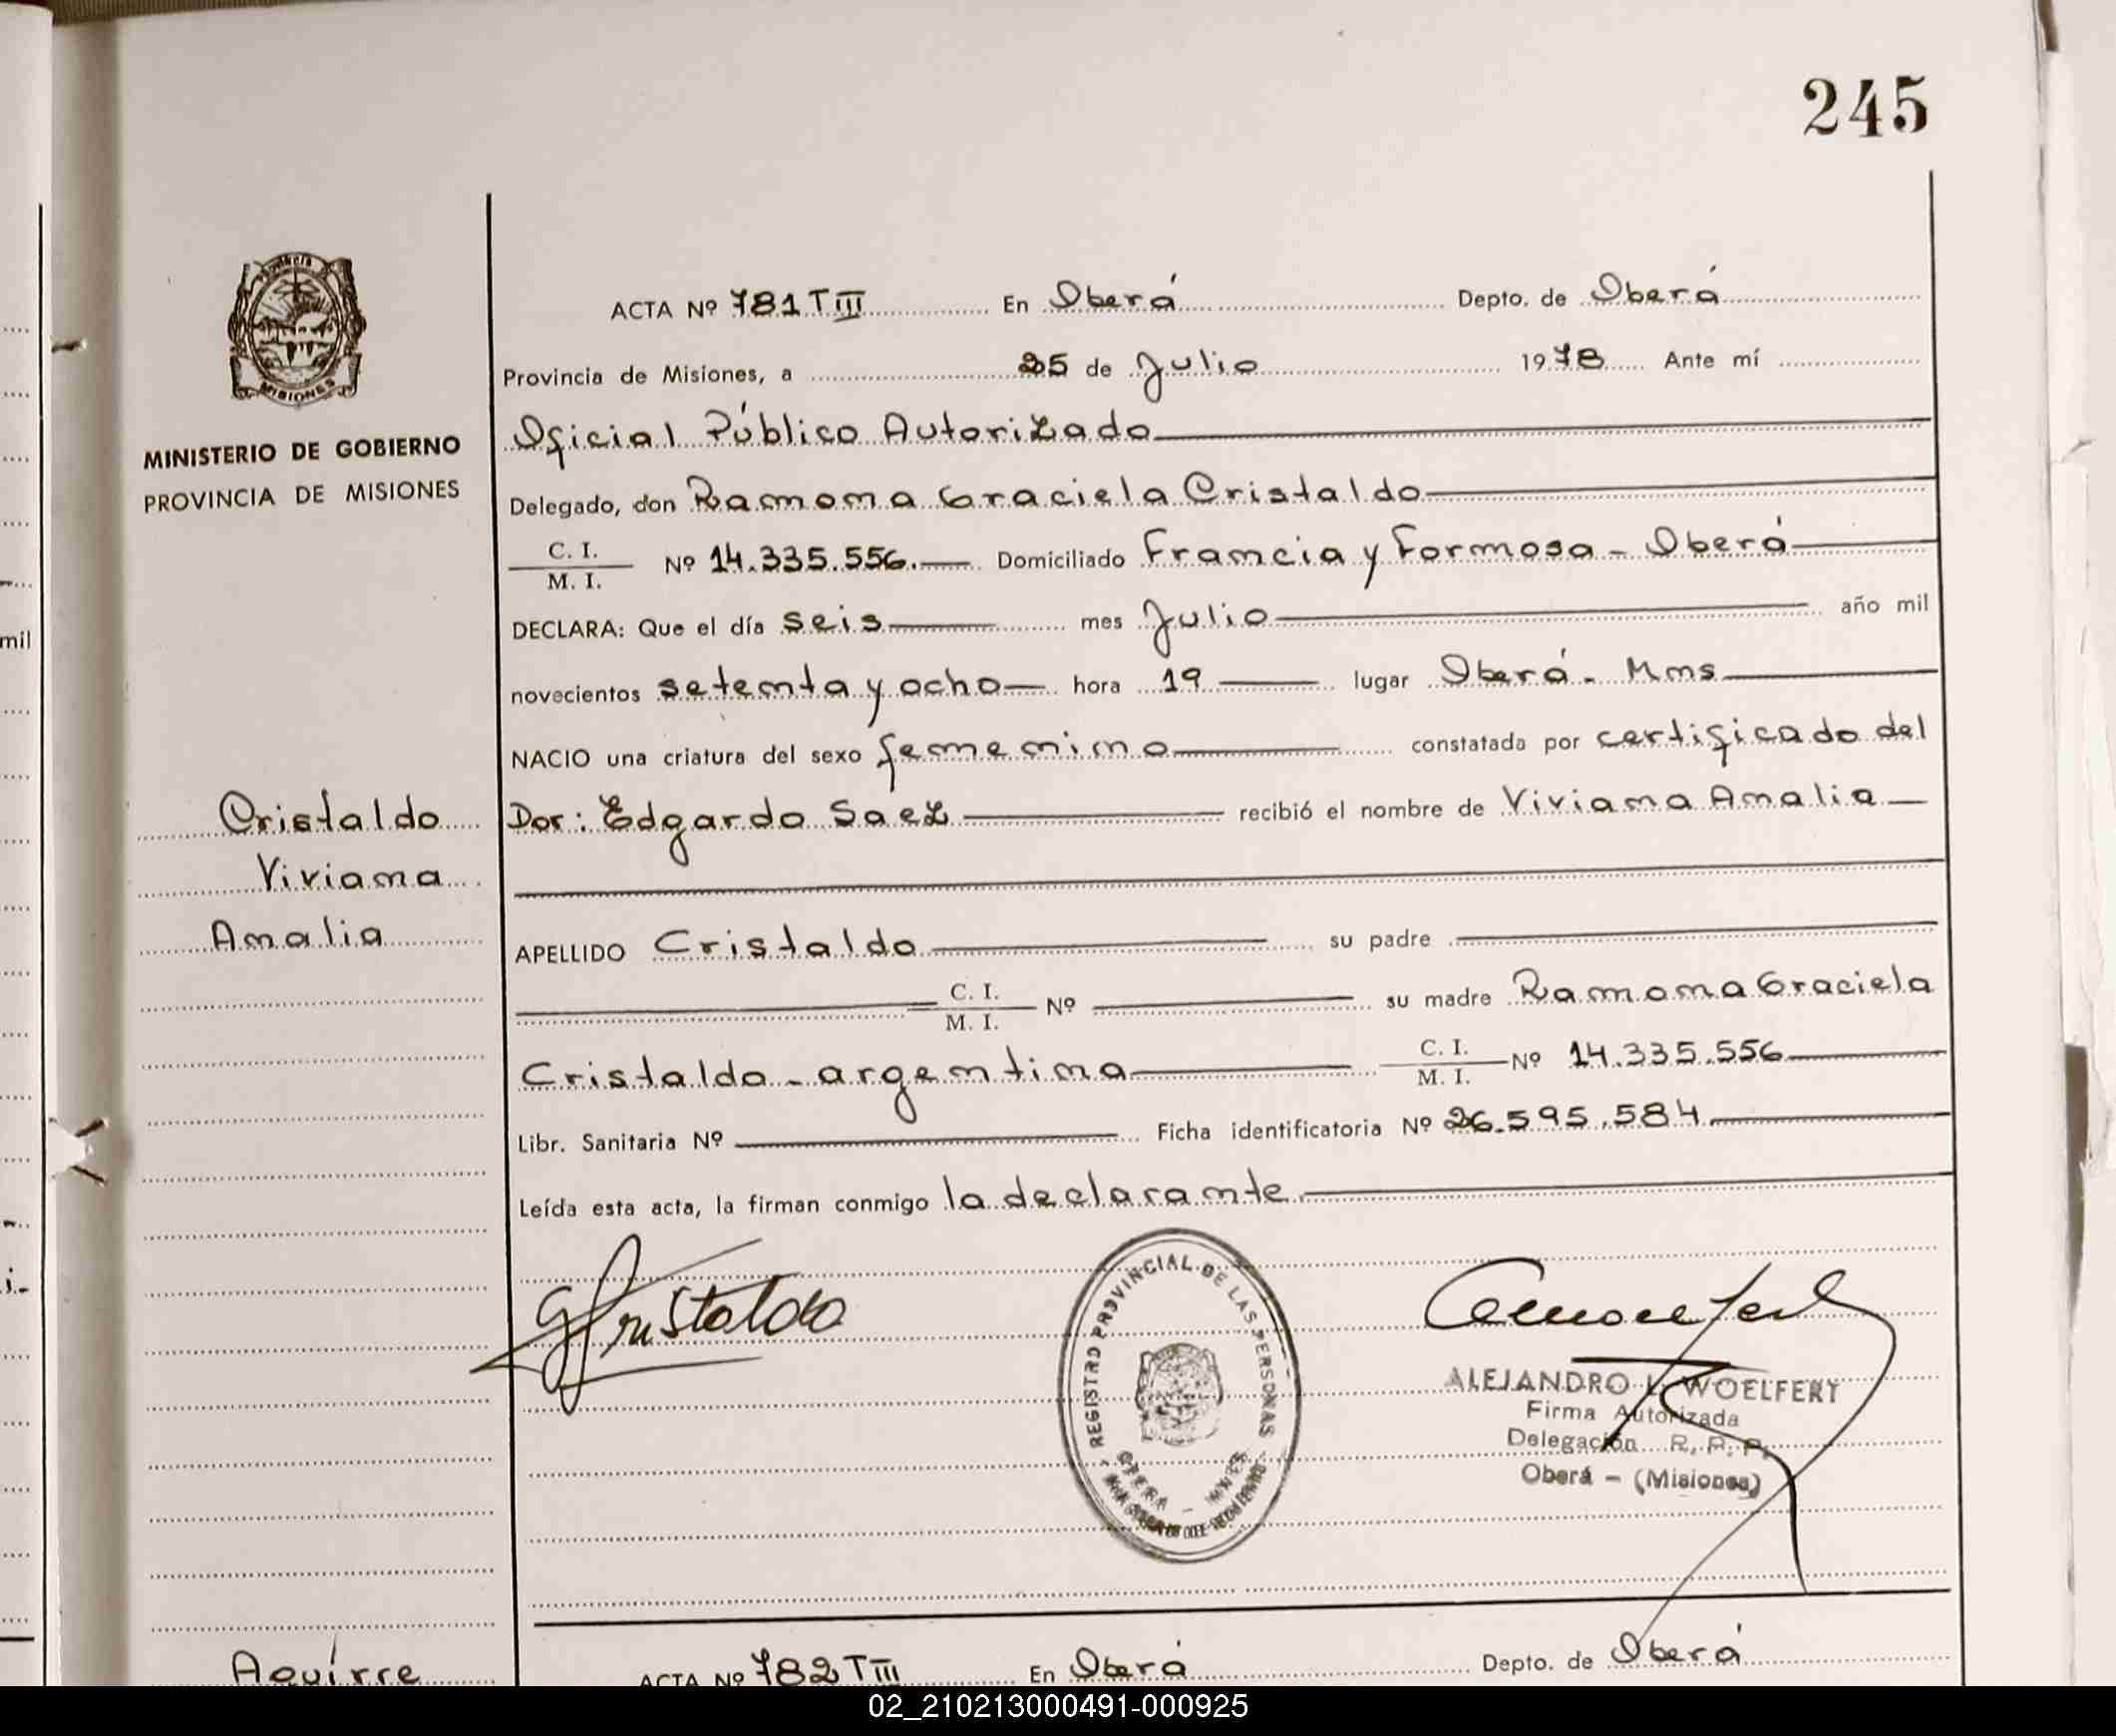 245
Provincia
MISIONES
MINISTERIO DE GOBIERNO
PROVINCIA DE MISIONES
ACTA Nº 781 T III En Oberá Depto. de Oberá
Provincia de Misiones, a 25 de Julio 1978 Ante mí
Oficial Público Autorizado
Delegado, don Ramona Graciela Cristaldo
C. I.
M. I. Nº 14.335.556.— Domiciliado Francia y Formosa - Oberá
DECLARA: Que el día seis mes Julio año mil
novecientos setenta y ocho hora 19 lugar Oberá - Mnes
NACIO una criatura del sexo femenino constatada por certificado del
Dor: Edgardo Saez recibió el nombre de Viviana Amalia
Cristaldo
Viviana
Amalia
APELLIDO Cristaldo su padre
C. I.
M. I. Nº su madre Ramona Graciela
Cristaldo - argentina C. I.
M. I. Nº 14.335.556
Libr. Sanitaria Nº Ficha identificatoria Nº 26.595.584
Leída esta acta, la firman conmigo la declarante
Cristaldo
REGISTRO PROVINCIAL DE LAS PERSONAS
OBERA - MNES
ALEJANDRO L. WOELFERT
Firma Autorizada
Delegación R. P. P.
Oberá - (Misiones)
Aguirre
ACTA Nº 782 T III En Oberá Depto. de Oberá
mil
i.-
02_210213000491-000925